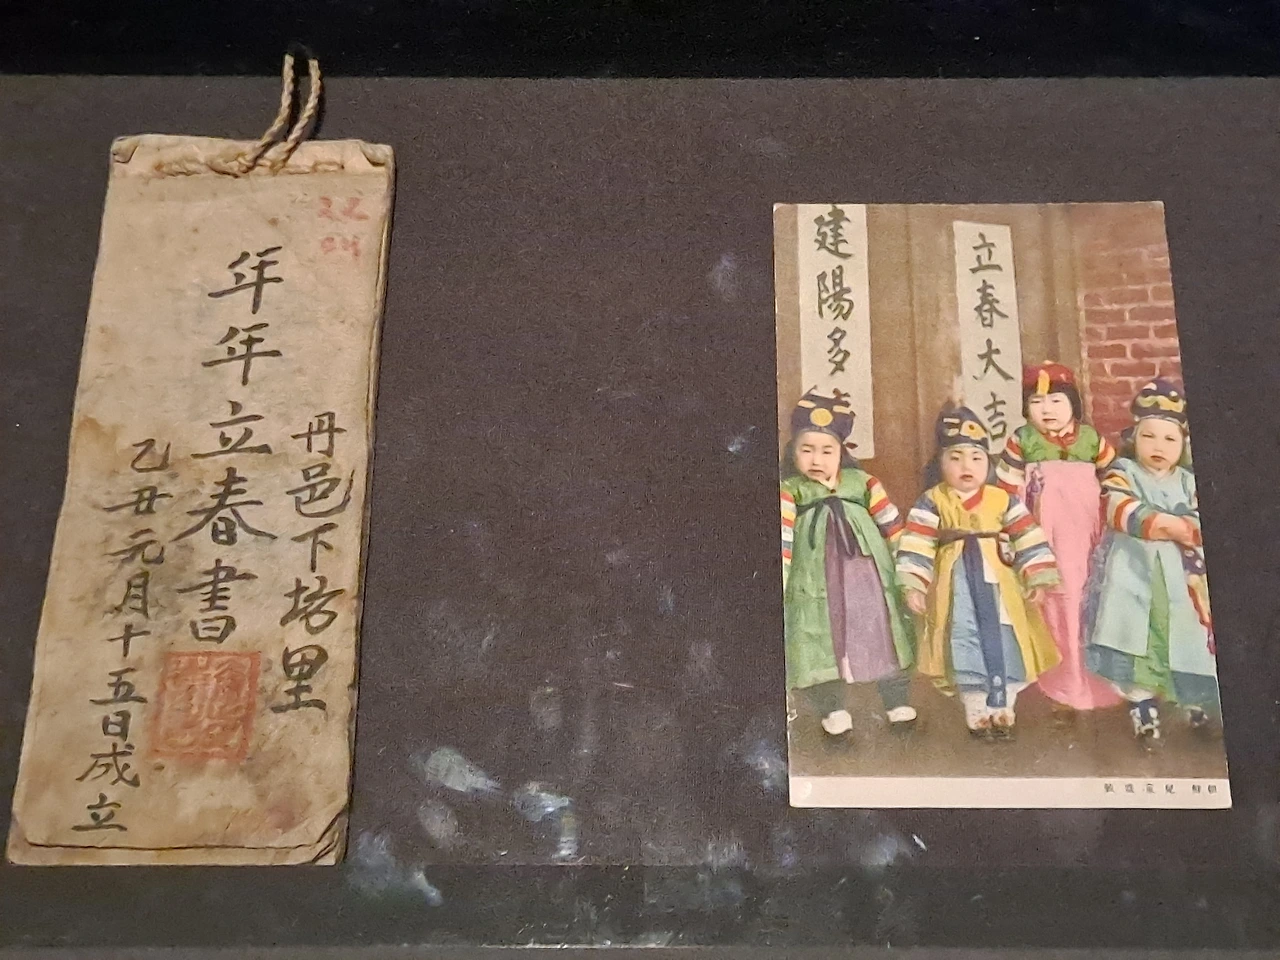 丹邑下坊里
年年立春書
乙丑元月十五日成立
建陽多
立春大吉